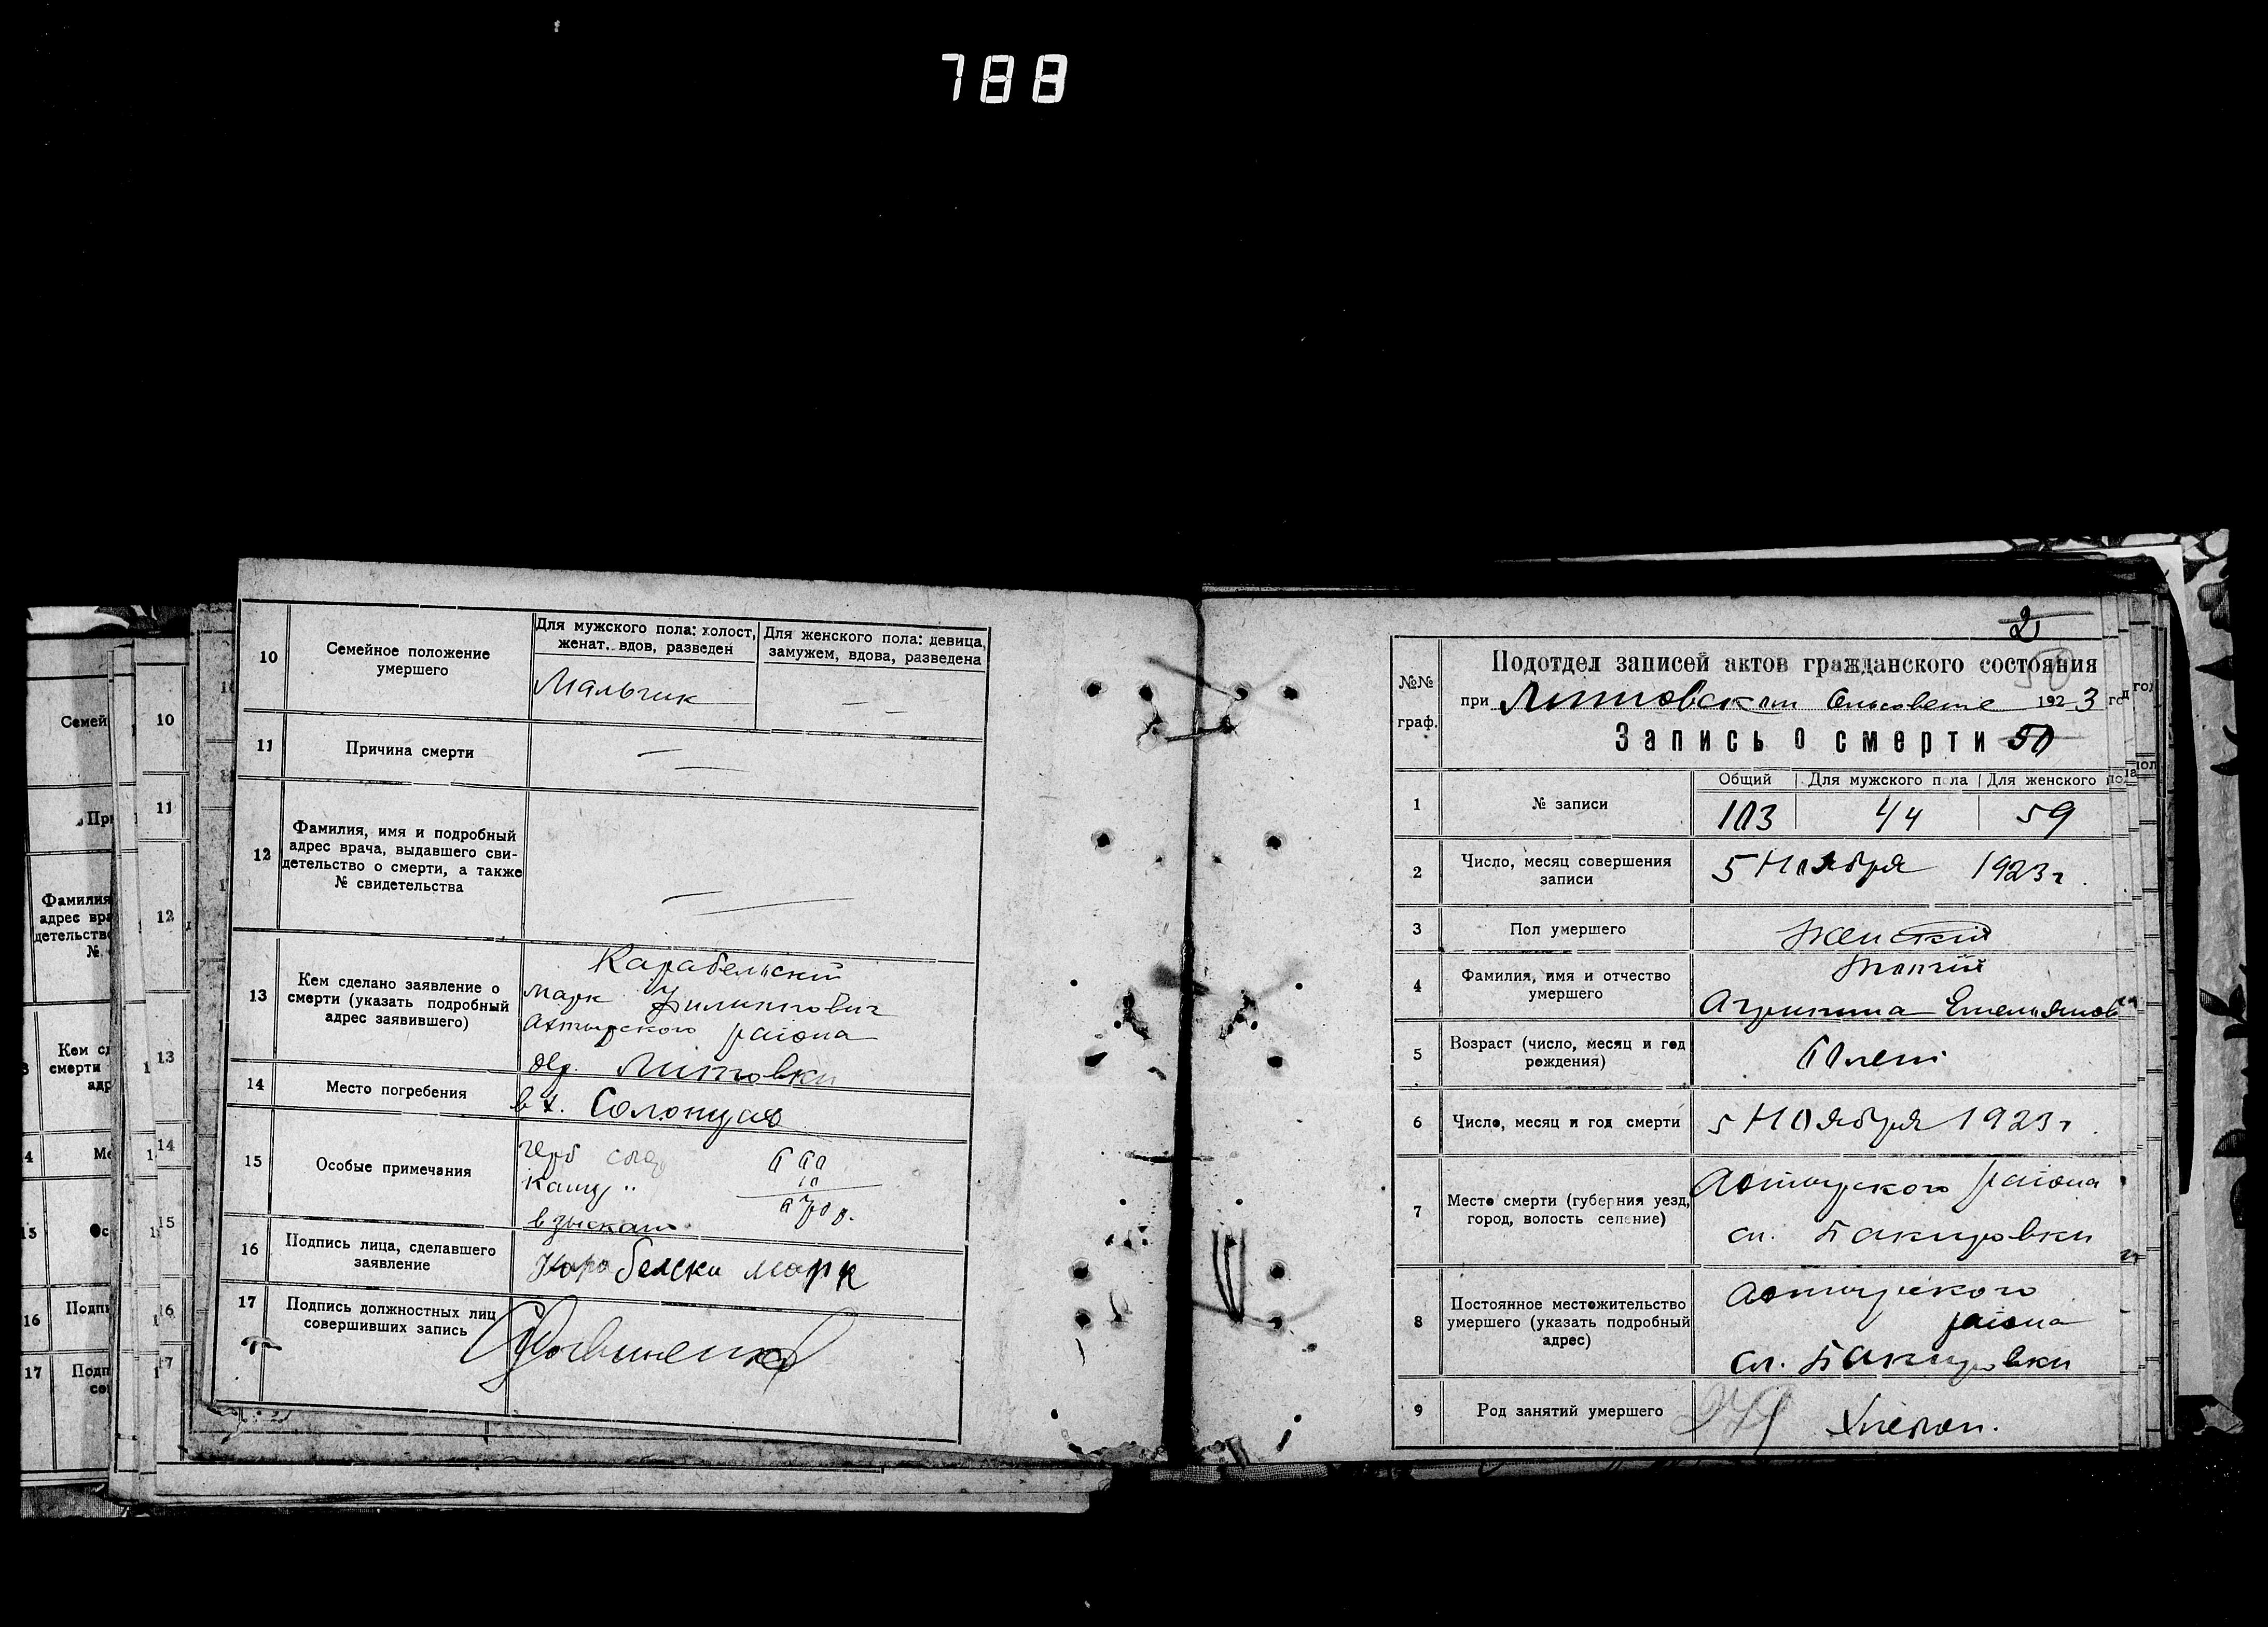 788
10
Семейное положение
умершего
Для мужского пола: холост,
женат, вдов, разведен
Для женского пола: девица,
замужем, вдова, разведена
Мальчик
— —
11
Причина смерти
— —
12
Фамилия, имя и подробный
адрес врача, выдавшего сви-
детельство о смерти, а также
№ свидетельства
— —
13
Кем сделано заявление о
смерти (указать подробный
адрес заявившего)
Карабельский
Марк Филиппович
Ахтырского района
дер. Литовки
14
Место погребения
в х. Солонцах
15
Особые примечания
герб
канц "
взыскано
10
16
Подпись лица, сделавшего
заявление
Карабелски Марк
17
Подпись должностных лиц
совершивших запись
Семей
10
11
Фамилия
12
13
14
15
16
17
2
№№
граф.
Подотдел записей актов гражданского состояния
при Литовском сельсовете 1923 год
Запись о смерти 50
1
№ записи
Общий
Для мужского пола
Для женского пола
103
44
59
2
Число, месяц совершения
записи
5 Ноября 1923 г.
3
Пол умершего
Женский
4
Фамилия, имя и отчество
умершего
Агрипина Емельянов
5
Возраст (число, месяц и год
рождения)
лет
6
Число, месяц и год смерти
5 Ноября 1923 г.
7
Место смерти (губерния уезд,
город, волость селение)
Ахтырского района
сл. Бакировки
8
Постоянное местожительство
умершего (указать подробный
адрес)
Ахтырского
района
сл. Бакировки
9
Род занятий умершего
Хлебоп.